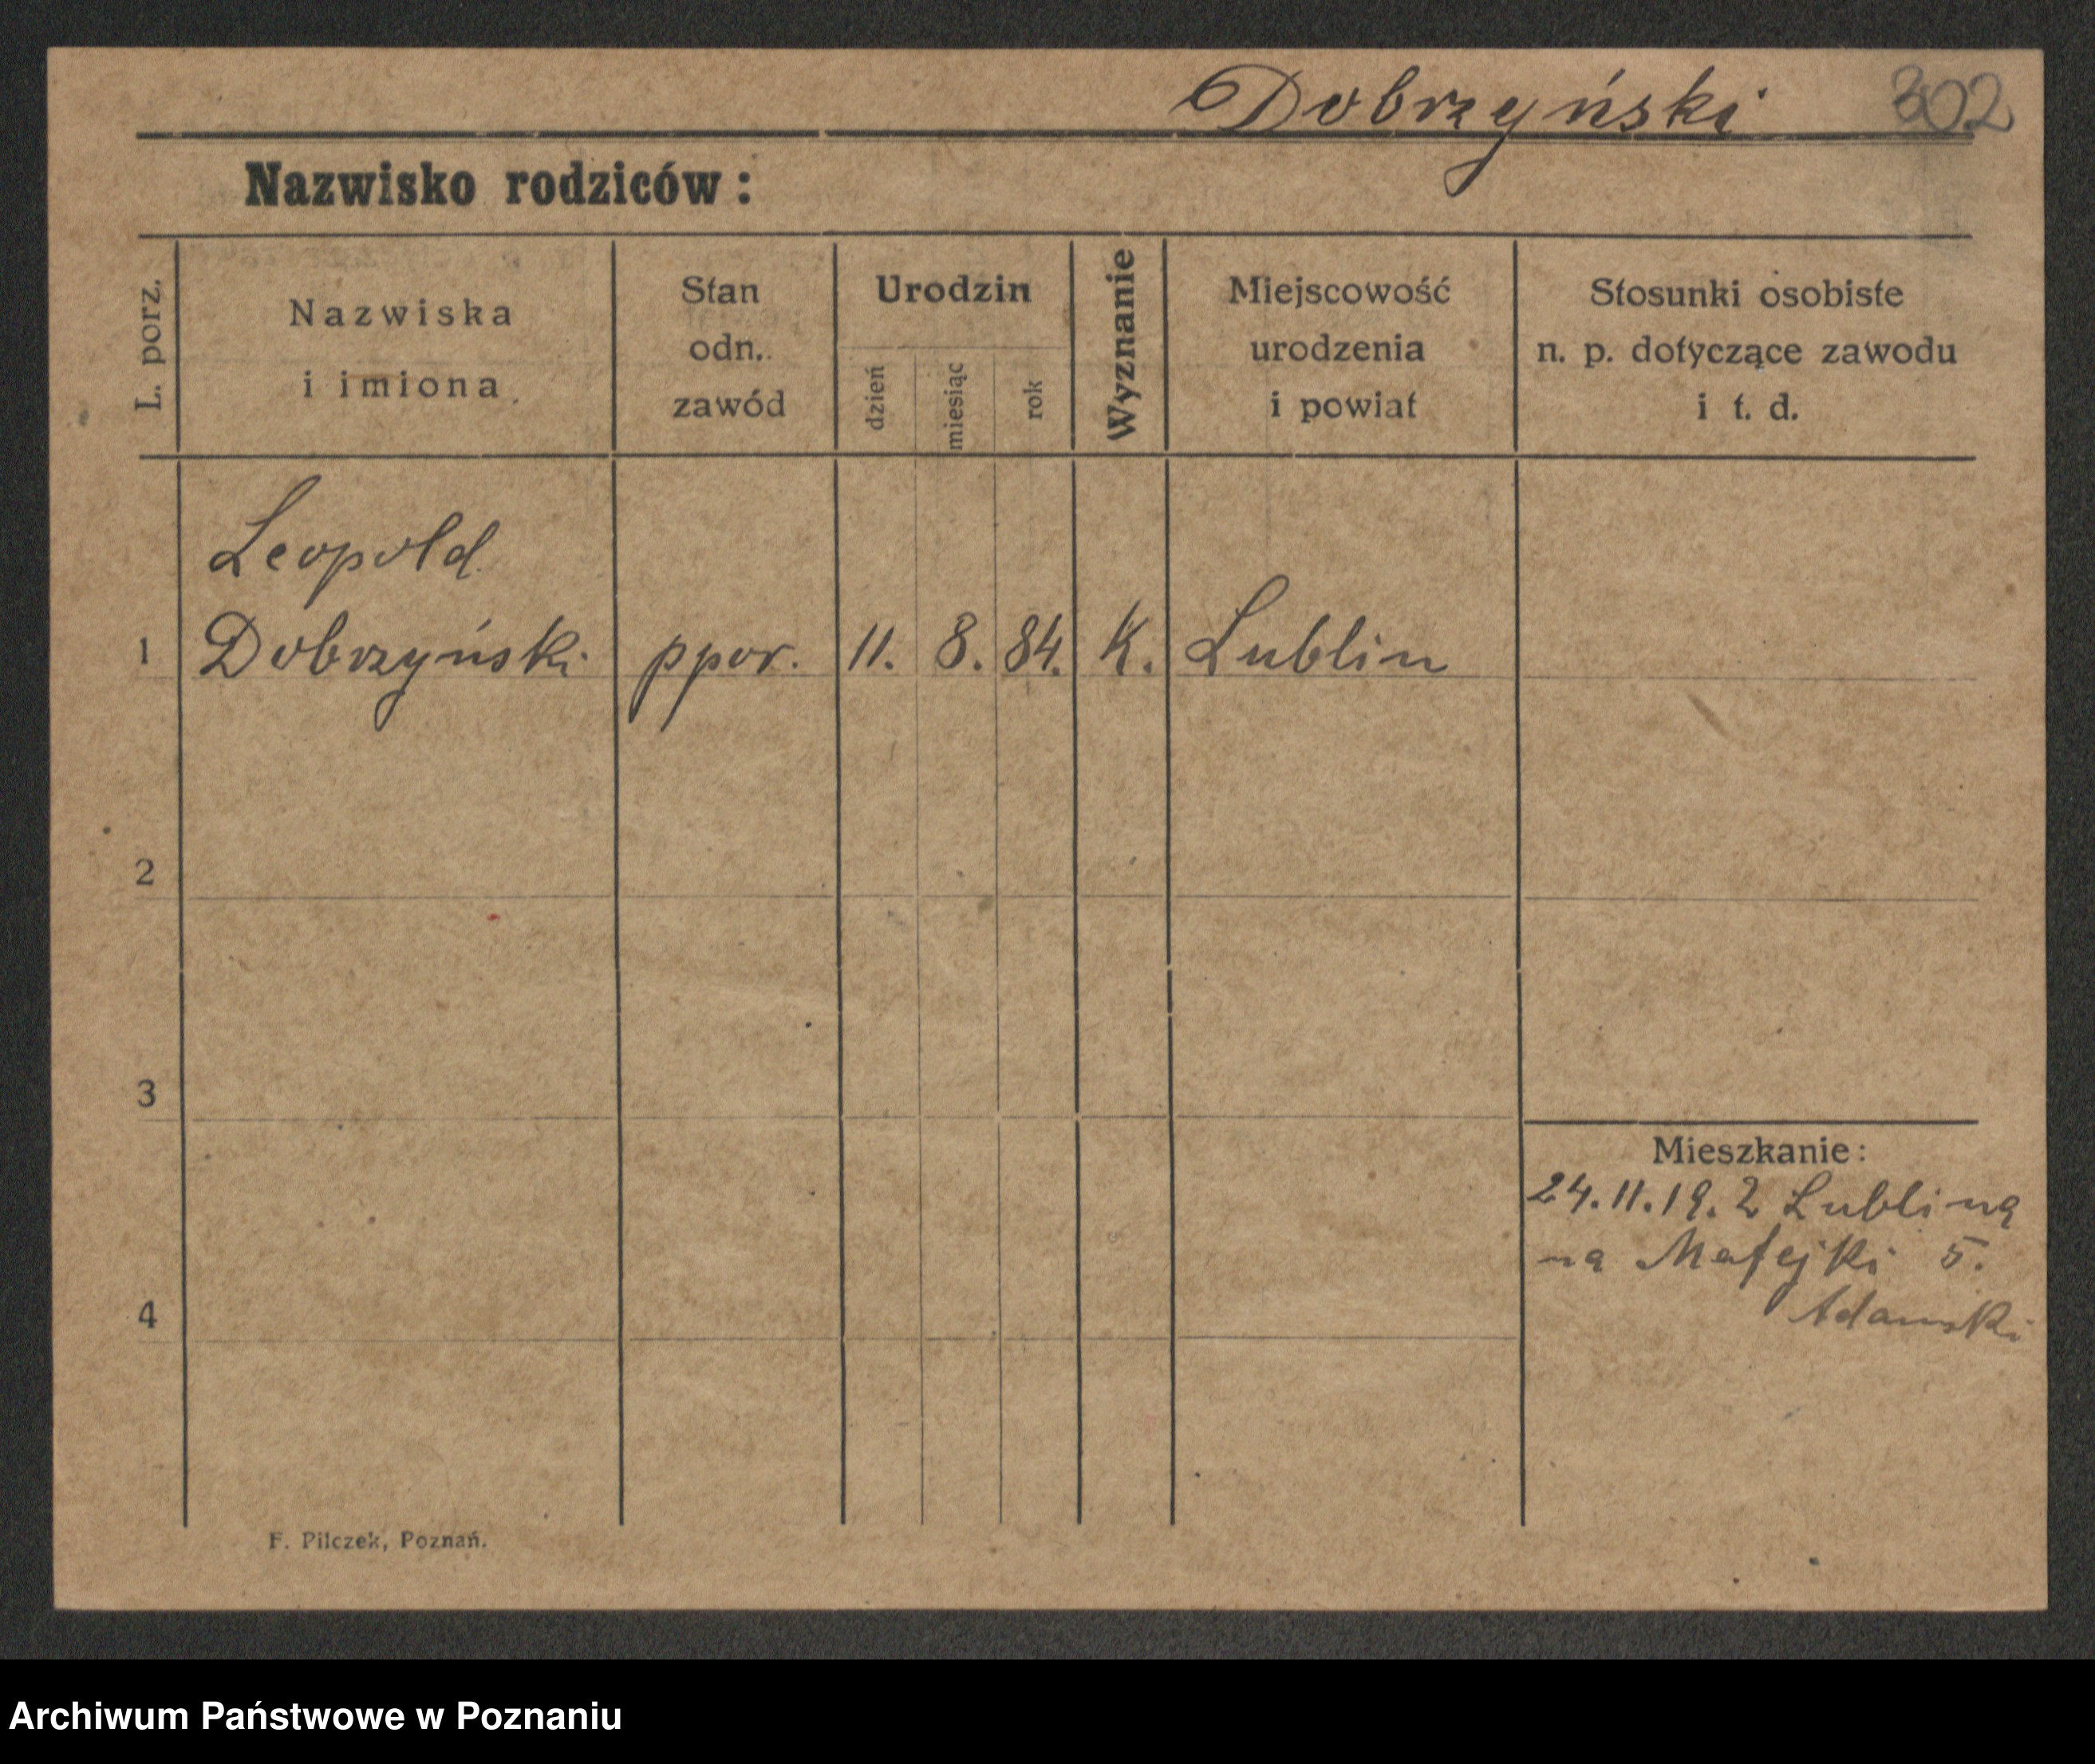 Dobrzyński 302
Nazwisko rodziców:
L. porz.
Nazwiska
i imiona
Stan
odn.
zawód
Urodzin
dzień
miesiąc
rok
Wyznanie
Miejscowość
urodzenia
i powiat
Stosunki osobiste
n. p. dotyczące zawodu
i t. d.
Leopold
1 Dobrzyński ppor. 11. 8. 84. K. Lublin
2
3
Mieszkanie:
24.11.19. z Lublina
na Matejki 5.
4
Adamski
F. Pilczek, Poznań.
Archiwum Państwowe w Poznaniu